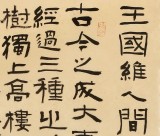 王國維人間
古今之成大事
經過三種之
樹獨上高樓